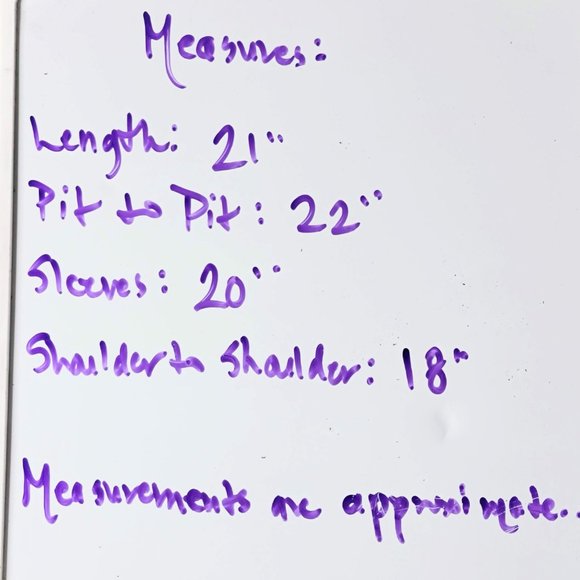 Measures:
Length: 21"
Pit to Pit: 22"
Sleeves: 20"
Shoulder to Shoulder: 18"
Measurements are approximate..